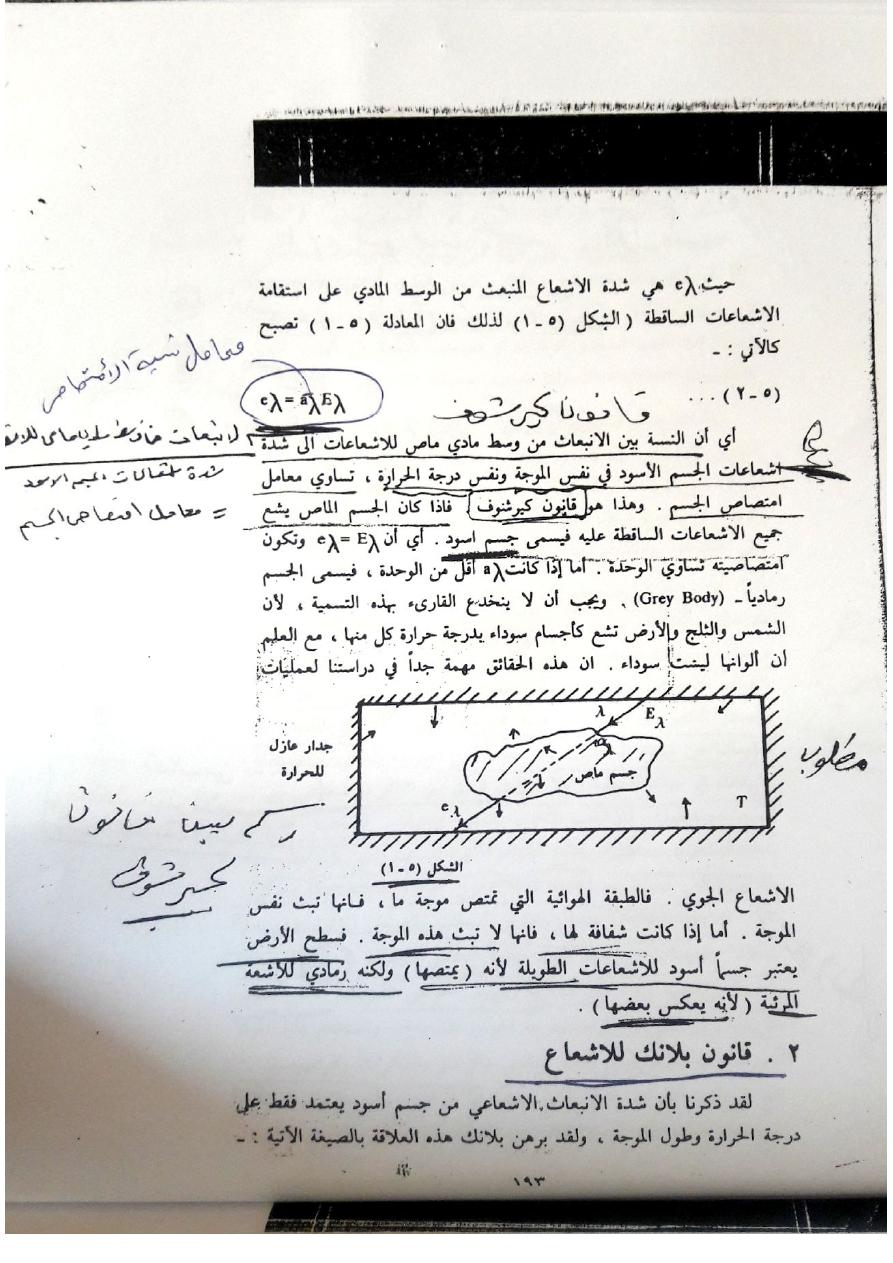 حيث eλ هي شدة الاشعاع المنبعث من الوسط المادي على استقامة
الاشعاعات الساقطة (الشكل (٥ - ١) لذلك فان المعادلة (٥ - ١) تصبح
كالآتي : -
معامل نسبة الأمتصاص
eλ = aλEλ
(٥ - ٢) ...
قانون كيرشوف
أي أن النسبة بين الانبعاث من وسط مادي ماص للاشعاعات الى شدة
اشعاعات الجسم الأسود في نفس الموجة ونفس درجة الحرارة ، تساوي معامل
امتصاص الجسم . وهذا هو قانون كيرشنوف . فاذا كان الجسم الماص يشع
جميع الاشعاعات الساقطة عليه فيسمى جسم اسود . أي أن eλ = Eλ وتكون
امتصاصيته تساوي الوحدة . أما إذا كانت aλ أقل من الوحدة ، فيسمى الجسم
رمادياً - (Grey Body) . ويجب أن لا ينخدع القارىء بهذه التسمية ، لأن
الشمس والثلج والأرض تشع كأجسام سوداء بدرجة حرارة كل منها ، مع العلم
أن ألوانها ليست سوداء . ان هذه الحقائق مهمة جداً في دراستنا لعمليات
= معامل امتصاص الجسم
جدار عازل
للحرارة
λ
Eλ
aλ
جسم ماص
eλ
T
مطلوب
رسم يبين قانون
كيرشوف
الشكل (٥ - ١)
الاشعاع الجوي . فالطبقة الهوائية التي تمتص موجة ما ، فانها تبث نفس
الموجة . أما إذا كانت شفافة لها ، فانها لا تبث هذه الموجة . فسطح الأرض
يعتبر جسماً أسود للاشعاعات الطويلة لأنه (يمتصها) ولكنه رمادي للأشعة
المرئية (لأنه يعكس بعضها) .
٢ . قانون بلانك للاشعاع
لقد ذكرنا بأن شدة الانبعاث الاشعاعي من جسم أسود يعتمد فقط على
درجة الحرارة وطول الموجة ، ولقد برهن بلانك هذه العلاقة بالصيغة الآتية : -
١٩٣